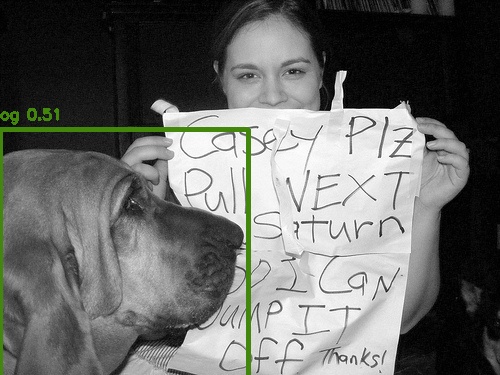 og 0.51
Casey Plz
Pull NEXT
Saturn
SO I CAN
JUMP IT
Off Thanks!